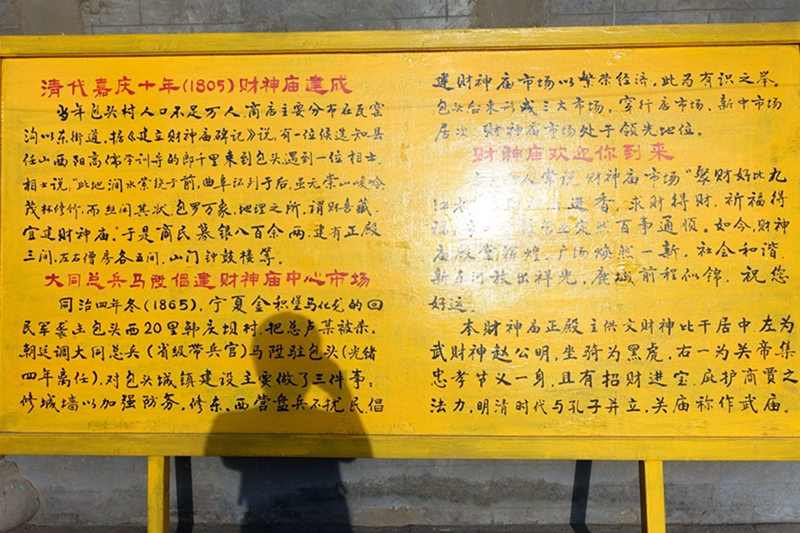 清代嘉庆十年(1805)财神庙建成
当年包头村人口不足万人,商店主要分布在瓦窑
沟以东街道,据《建立财神庙碑记》说,有一位候选知县
任山西阳高儒学训导的郎千里来到包头遇到一位相士,
相士说,"此地涧水萦绕于前,曲阜环列于后,虽无崇山峻岭
茂林修竹,而丝闻其状,包罗万象,地理之所,谓财喜藏,
宜建财神庙."于是商民募银八百余两,建有正殿
三间,左右僧房各五间,山门钟鼓楼等.
大同总兵马陞倡建财神庙中心市场
同治四年冬(1865),宁夏金积堡马化龙的回
民军袭击包头西20里韩庆坝村,把总卢某被杀,
朝廷调大同总兵(省级带兵官)马陞驻包头(光绪
四年离任).对包头城镇建设主要做了三件事:
修城墙以加强防务,修东、西营盘兵不扰民,倡
建财神庙市场以繁荣经济,此为有识之举.
包头后来形成三大市场,牛桥市场、新中市场
居次,财神庙市场处于领先地位.
财神庙欢迎你到来
人常说财神庙市场"聚财好比九
进香,求财得财,祈福得
福,百事通顺.如今,财神
庙殿堂辉煌,广场焕然一新,社会和谐,
新东河放出祥光,鹿城前程似锦,祝您
好运.
本财神庙正殿主供文财神比干居中,左为
武财神赵公明,坐骑为黑虎,右一为关帝集
忠孝节义一身,且有招财进宝,庇护商贾之
法力,明清时代与孔子并立,关庙称作武庙.